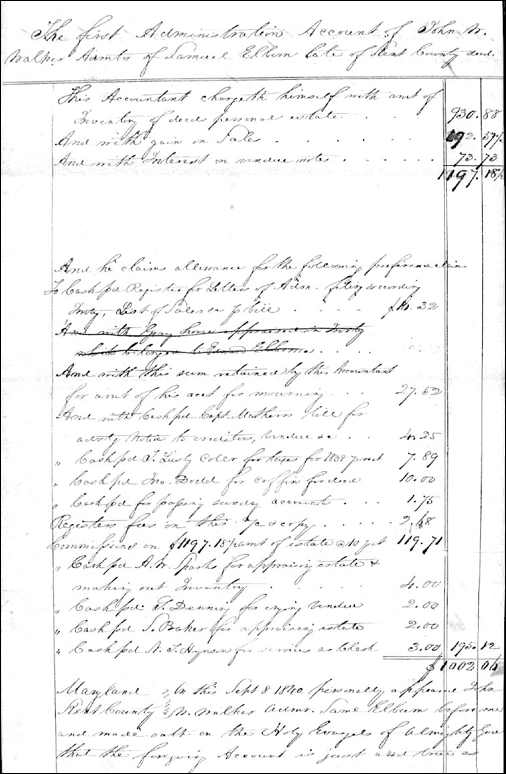 The first Administration Account of John W.
Walker Admtor of Samuel Elburn late of Kent County decd.
This Accountant chargeth himself with amt of
Inventory of decd personal estate . . . 930.88
And with gain on Sales . . . . . 192.57½
And with Interest on vendue notes . . . . . . 73.73
1197.18½
And he claims allowance for the following
To Cash pd Register for Letters of Adm. filing recording
Invty, List of Sales &
And with Gray horse appraised in Invty
which belonged to Edward Elburn . . .
And with this sum retained by this Accountant
for amt of his acct for mourning . . . 27.52
And with Cash pd Capt. Mathews Hill for
notice to creditors, vendue &c . . 4.25
" Cash pd T. Lusby Coler for taxes for 1838 7.89
" Cash pd Jno. Dodd for coffin for decd 10.00
" Cash pd for passing sundry accounts . . . 1.75
Registers fees on this a/c & copy . . . . . 2.68
Commissions on $1197.18½ amt of estate @ 10 pct 119.71
" Cash pd A. W. Sparks for appraising estate &
making out Inventory . . . . 4.00
" Cash pd T. Denning for crying vendue 2.00
" Cash pd S. Baker for appraising estate 2.00
" Cash pd N. T. Hynson for services as Clerk 3.00 195.12
$1002.06½
Maryland On this Sept 8 1840 personally appeared John
Kent County W. Walker Admr. Saml Elburn before me
and made oath on the Holy Evangels of Almighty God
that the foregoing Account is just and true as